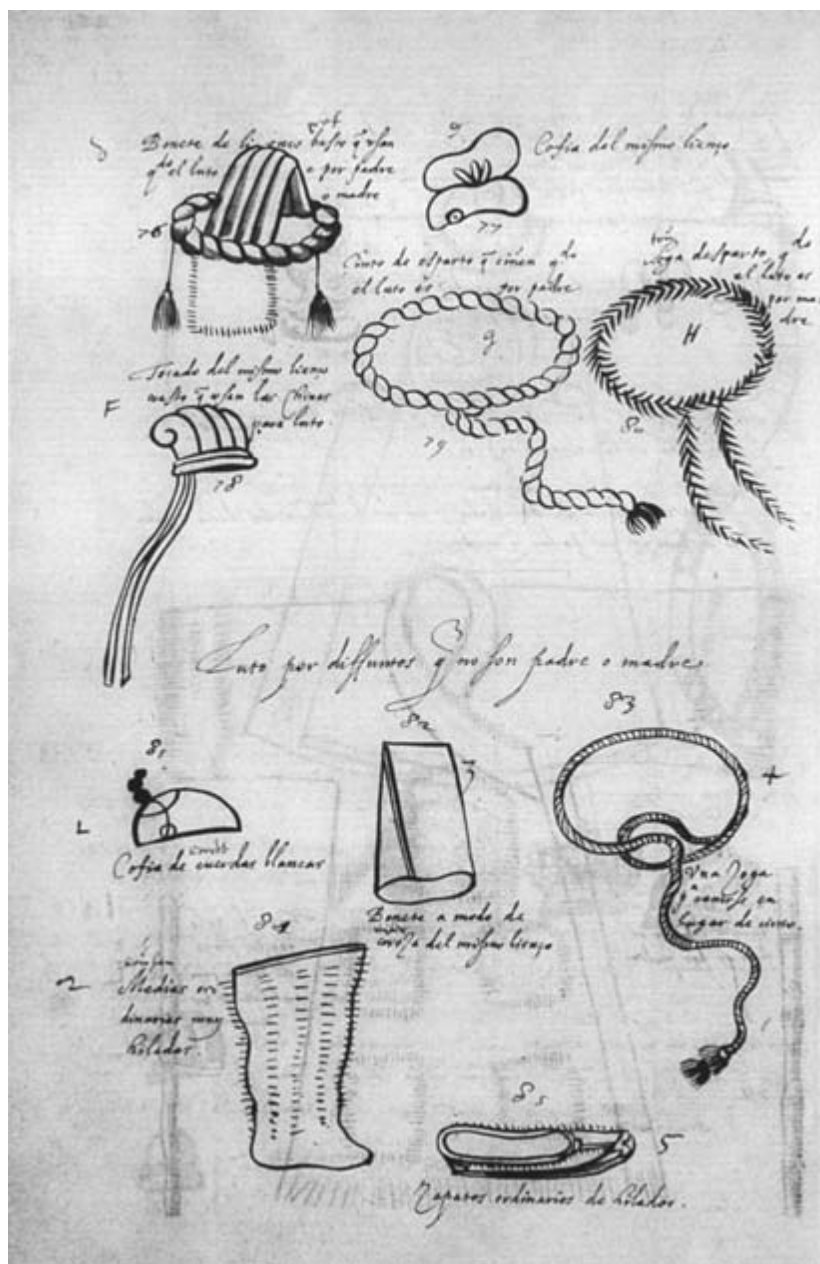 Bonete de lienço basto q̃ usan
qdo el luto es por padre
o madre
76
9
Cofia del mismo lienço
77
Cinto de esparto q̃ ciñen qdo
el luto es por padre
g
79
Soga desparto, qdo
el luto es
por ma
dre
H
80
F
Tocado del mismo lienço
vasto q̃ usan las Chinas
para luto.
78
Luto por diffuntos q̃ no son padre o madre
81
L
Cofia de cuerdas blancas
82
3
Bonete a modo de
coroza del mismo lienço
83
4
Una Soga
q̃ ponense en
lugar de cinto.
84
2
Medias or
dinarias muy
hiladas
85
5
Zapatos ordinarios de hilados.